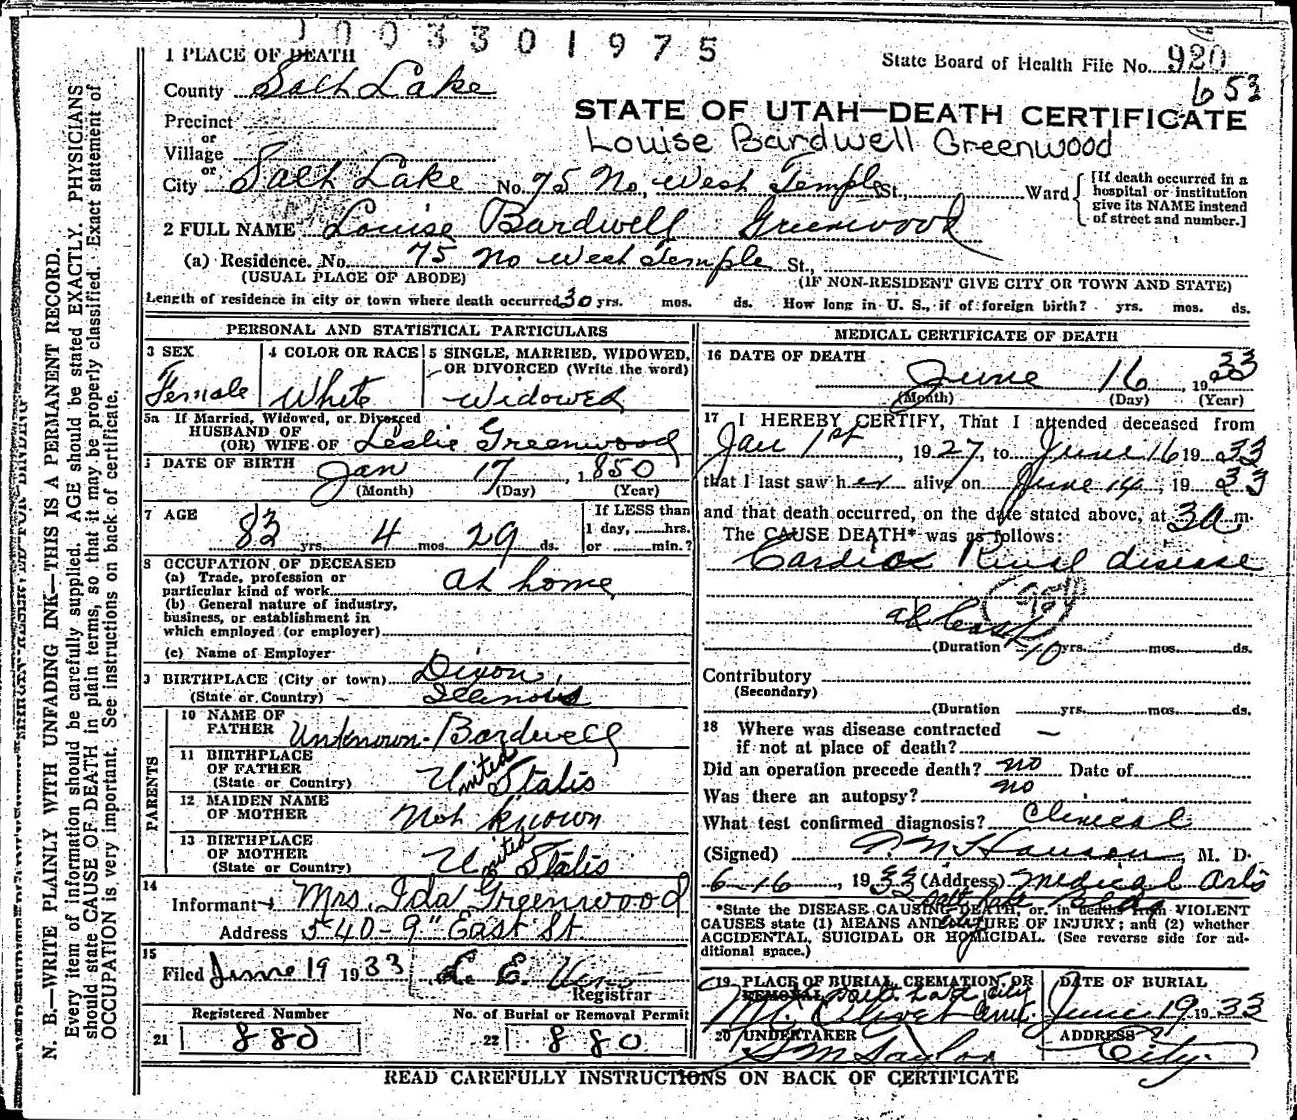 1003301975
1 PLACE OF DEATH
State Board of Health File No. 920
653
County Salt Lake
STATE OF UTAH—DEATH CERTIFICATE
Precinct
Louise Bardwell Greenwood
or
Village
or
City Salt Lake No. 75 No. West Temple St., Ward
[If death occurred in a
hospital or institution
give its NAME instead
of street and number.]
2 FULL NAME Louise Bardwell Greenwood
(a) Residence. No. 75 No West Temple St.,
(USUAL PLACE OF ABODE) (IF NON-RESIDENT GIVE CITY OR TOWN AND STATE)
Length of residence in city or town where death occurred 30 yrs. mos. ds. How long in U. S., if of foreign birth? yrs. mos. ds.
PERSONAL AND STATISTICAL PARTICULARS
3 SEX
Female
4 COLOR OR RACE
White
5 SINGLE, MARRIED, WIDOWED,
OR DIVORCED (Write the word)
Widowed
5a If Married, Widowed, or Divorced
HUSBAND OF
(OR) WIFE OF Leslie Greenwood
DATE OF BIRTH Jan 17, 1850
(Month) (Day) (Year)
7 AGE
83 yrs. 4 mos. 29 ds.
If LESS than
1 day, hrs.
or min.?
8 OCCUPATION OF DECEASED
(a) Trade, profession or
particular kind of work at home
(b) General nature of industry,
business, or establishment in
which employed (or employer)
(c) Name of Employer
9 BIRTHPLACE (City or town) Dixon,
(State or Country) Illinois
PARENTS
10 NAME OF
FATHER Unknown - Bardwell
11 BIRTHPLACE
OF FATHER
(State or Country) United States
12 MAIDEN NAME
OF MOTHER Not known
13 BIRTHPLACE
OF MOTHER
(State or Country) United States
14
Informant Mrs. Ida Greenwood
Address 540-9" East St.
15
Filed June 19 1933
Registrar
Registered Number
21 880
No. of Burial or Removal Permit
22 880
MEDICAL CERTIFICATE OF DEATH
16 DATE OF DEATH
June 16, 1933
(Month) (Day) (Year)
17 I HEREBY CERTIFY, That I attended deceased from
Jan 1st, 1927, to June 16 1933
that I last saw her alive on June 14, 1933
and that death occurred, on the date stated above, at 3 a m.
The CAUSE DEATH* was as follows:
Cardiac Renal disease
at least
(Duration 10 yrs. mos. ds.
Contributory
(Secondary)
(Duration yrs. mos. ds.
18 Where was disease contracted
if not at place of death? —
Did an operation precede death? no Date of
Was there an autopsy? no
What test confirmed diagnosis? Clinical
(Signed) Hanson, M. D.
6-16, 1933 (Address) Medical Arts
Salt Lake Bldg
*State the DISEASE CAUSING DEATH, or in deaths from VIOLENT
CAUSES state (1) MEANS AND NATURE OF INJURY; and (2) whether
ACCIDENTAL, SUICIDAL OR HOMICIDAL. (See reverse side for ad-
ditional space.)
19 PLACE OF BURIAL, CREMATION, OR
REMOVAL Salt Lake City
Mt. Olivet Cem.
DATE OF BURIAL
June 19 1933
20 UNDERTAKER
S M Taylor
ADDRESS
City.
READ CAREFULLY INSTRUCTIONS ON BACK OF CERTIFICATE
N. B.—WRITE PLAINLY WITH UNFADING INK—THIS IS A PERMANENT RECORD.
Every item of information should be carefully supplied. AGE should be stated EXACTLY. PHYSICIANS
should state CAUSE OF DEATH in plain terms, so that it may be properly classified. Exact statement of
OCCUPATION is very important. See instructions on back of certificate.